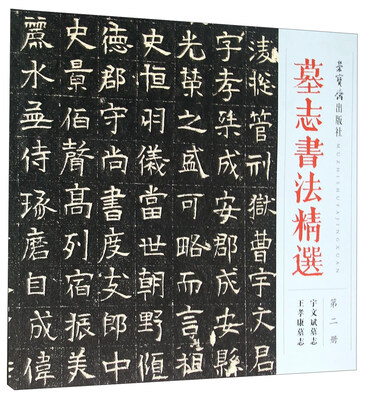 荣宝斋出版社
MUZHISHUFAJINGXUAN
墓志書法精選
第二册
宇文斌墓志
王孝康墓志
管刑獄曹宇文君
字孝柒成安郡成安縣
光榮之盛可略而言祖
史恒羽儀當世朝野傾
德郡守尚書度支郎中
史景佰聲高列宿振美
麗水琢磨自成偉